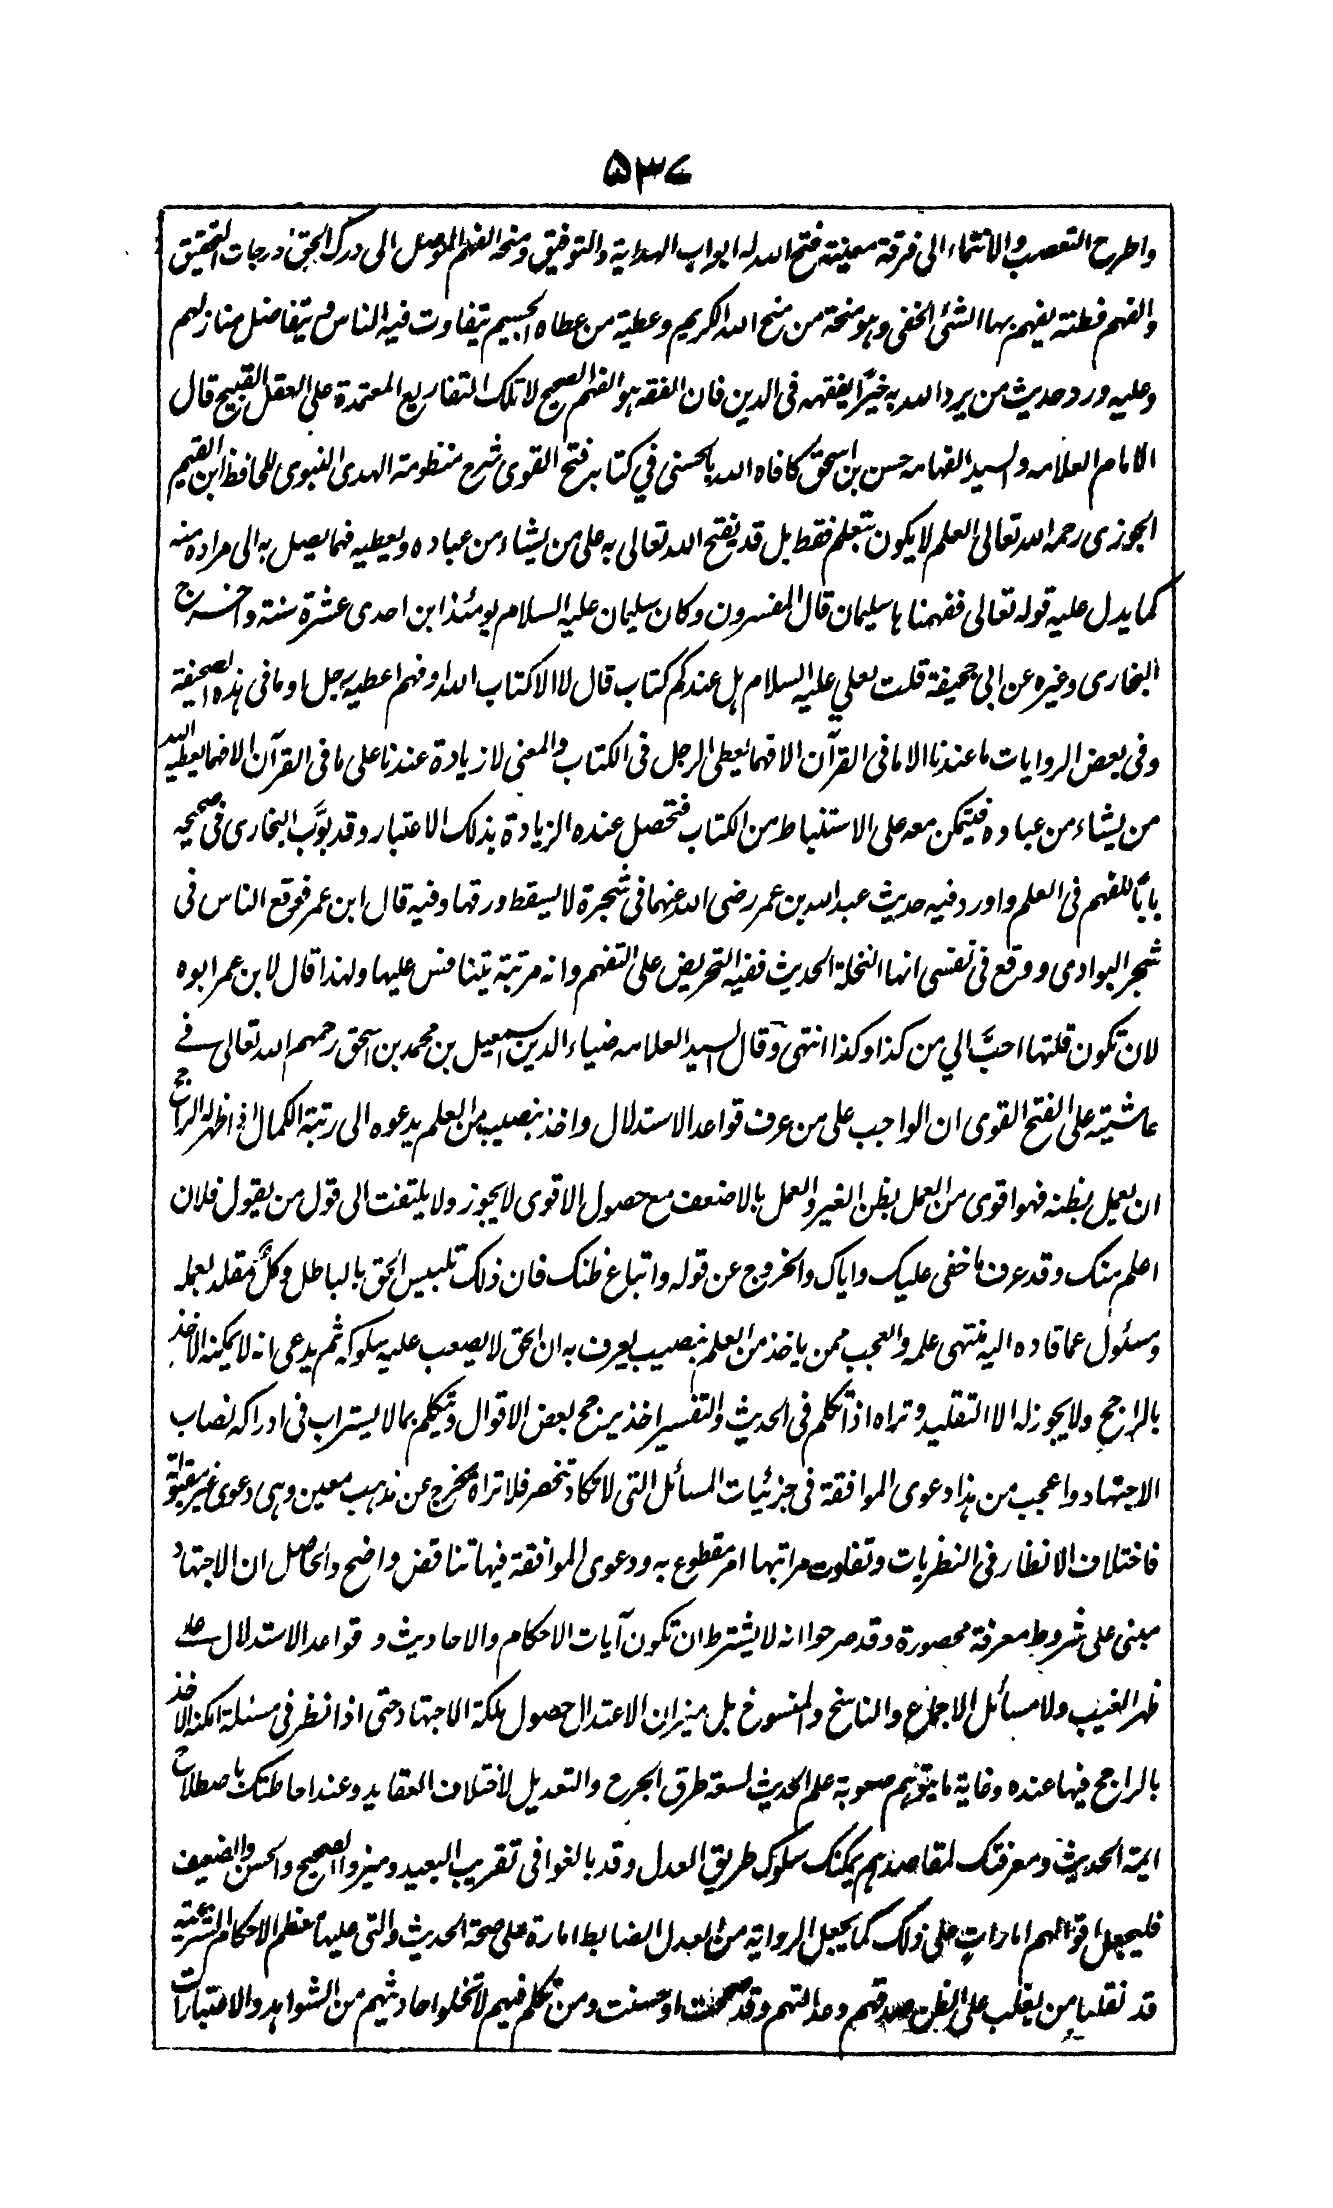 ۵۳۷
واطرح التعصب والانتماء الى فرقة معينة فتح الله له ابواب الهداية والتوفيق ومنحه الفهم الموصل الى درك الحق ودرجات التحقيق
والفهم فطنة يفهم بها الشئ الخفى وهو منحة من منح الله الكريم وعطية من عطاه الجسيم يتفاوت فيه الناس ويتفاضل منازلهم
وعليه ورد حديث من يرد الله به خيرًا يفقهه فى الدين فان الفقه هو الفهم الصحيح لا تلك التفاريع المعتمدة على العقل القبيح قال
الامام العلامه والسيد الفهامه حسن بن اسحق كافاه الله بالحسنى في كتابه فتح القوى شرح منظومة الهدى النبوى للحافظ ابن القيم
الجوزى رحمه الله تعالى العلم لا يكون بتعلم فقط بل قد يفتح الله تعالى به على من يشاء من عباده ويعطيه فهما يصيل به الى مراده منه
كما يدل عليه قوله تعالى ففهمناها سليمان قال المفسرون وكان سليمان عليه السلام يومئذ ابن احدى عشرة سنة واخرج
البخارى وغيره عن ابى جحيفة قلت لعلي عليه السلام هل عندكم كتاب قال لا الا كتاب الله او فهم اعطيه رجل او ما فى هذه الصحيفة
وفى بعض الروايات ما عندنا الا ما فى القرآن الا فهما يعطى الرجل فى الكتاب والمعنى لا زيادة عندنا على ما فى القرآن الا فهما يعطيه الله
من يشاء من عباده فيتمكن معه على الاستنباط من الكتاب فتحصل عنده الزيادة بذلك الاعتبار وقد بوَّب البخارى فى صحيحه
بابًا للفهم فى العلم واورد فيه حديث عبد الله بن عمر رضى الله عنهما فى شجرة لا يسقط ورقها وفيه قال ابن عمر فوقع الناس فى
شجر البوادى ووقع فى نفسى انها النخلة الحديث ففيه التحريض على التفهم وانه مرتبة يتنافس عليها ولهذا قال لابن عمر ابوه
لان تكون قلتها احبَّ الي من كذا وكذا انتهى وقال السيد العلامه ضياء الدين اسمعيل بن محمد بن اسحق رحمهم الله تعالى فى
حاشيته على الفتح القوى ان الواجب على من عرف قواعد الاستدلال واخذ بنصيب من العلم يدعوه الى رتبة الكمال اذا ظهر له الراجح
ان يعمل بظنه فهو اقوى من العمل بظن الغير والعمل بالاضعف مع حصول الاقوى لا يجوز ولا يلتفت الى قول من يقول فلان
اعلم منك وقد عرف ما خفى عليك واياك والخروج عن قوله واتباع ظنك فان ذلك تلبيس الحق بالباطل وكلٌّ مقلد بعمله
ومسئول عما قاده اليه منتهى علمه والعجب ممن ياخذ من العلم بنصيب يعرف به ان الحق لا يصعب عليه سلوكه ثم يدعى انه لا يمكنه الاخذ
بالراجح ولا يجوز له الا التقليد وتراه اذا تكلم فى الحديث والتفسير اخذ يرجح بعض الاقوال ويتكلم بما لا يستراب فى ادراكه نصاب
الاجتهاد واعجب من هذا دعوى الموافقة فى جزئيات المسائل التى لا تكاد تنحصر فلا تراه يخرج عن مذهب معين وهى دعوى غير مقبولة
فاختلاف الانظار فى النظريات وتفاوت مراتبها امر مقطوع به ودعوى الموافقة فيها تناقض واضح والحاصل ان الاجتهاد
مبنى على شروط معرفة محصورة وقد صرحوا انه لا يشترط ان تكون آيات الاحكام والاحاديث و قواعد الاستدلال على
ظهر الغيب ولا مسائل الاجماع والناسخ والمنسوخ بل ميزان الاعتدال حصول ملكة الاجتهاد حتى اذا نظر فى مسئلة امكنه الاخذ
بالراجح فيها عنده وغاية ما يتوهم صعوبة علم الحديث لسعة طرق الجرح والتعديل لاختلاف العقايد وعند احاطتك باصطلاح
ايمة الحديث ومعرفتك لمقاصدهم يمكنك سلوك طريق العدل وقد بالغوا فى تقريب البعيد وميزوا الصحيح والحسن والضعيف
فليجعل اقوالهم امارات على ذلك كما يجعل الرواية من العدل الضابط امارة على صحة الحديث والتى عليها عظم الاحكام الشرعية
قد نقلها من يغلب على الظن صدقهم وعدالتهم وقد صححت او حسنت ومن تكلم فيهم لا تخلو احاديثهم من الشواهد والاعتبارات